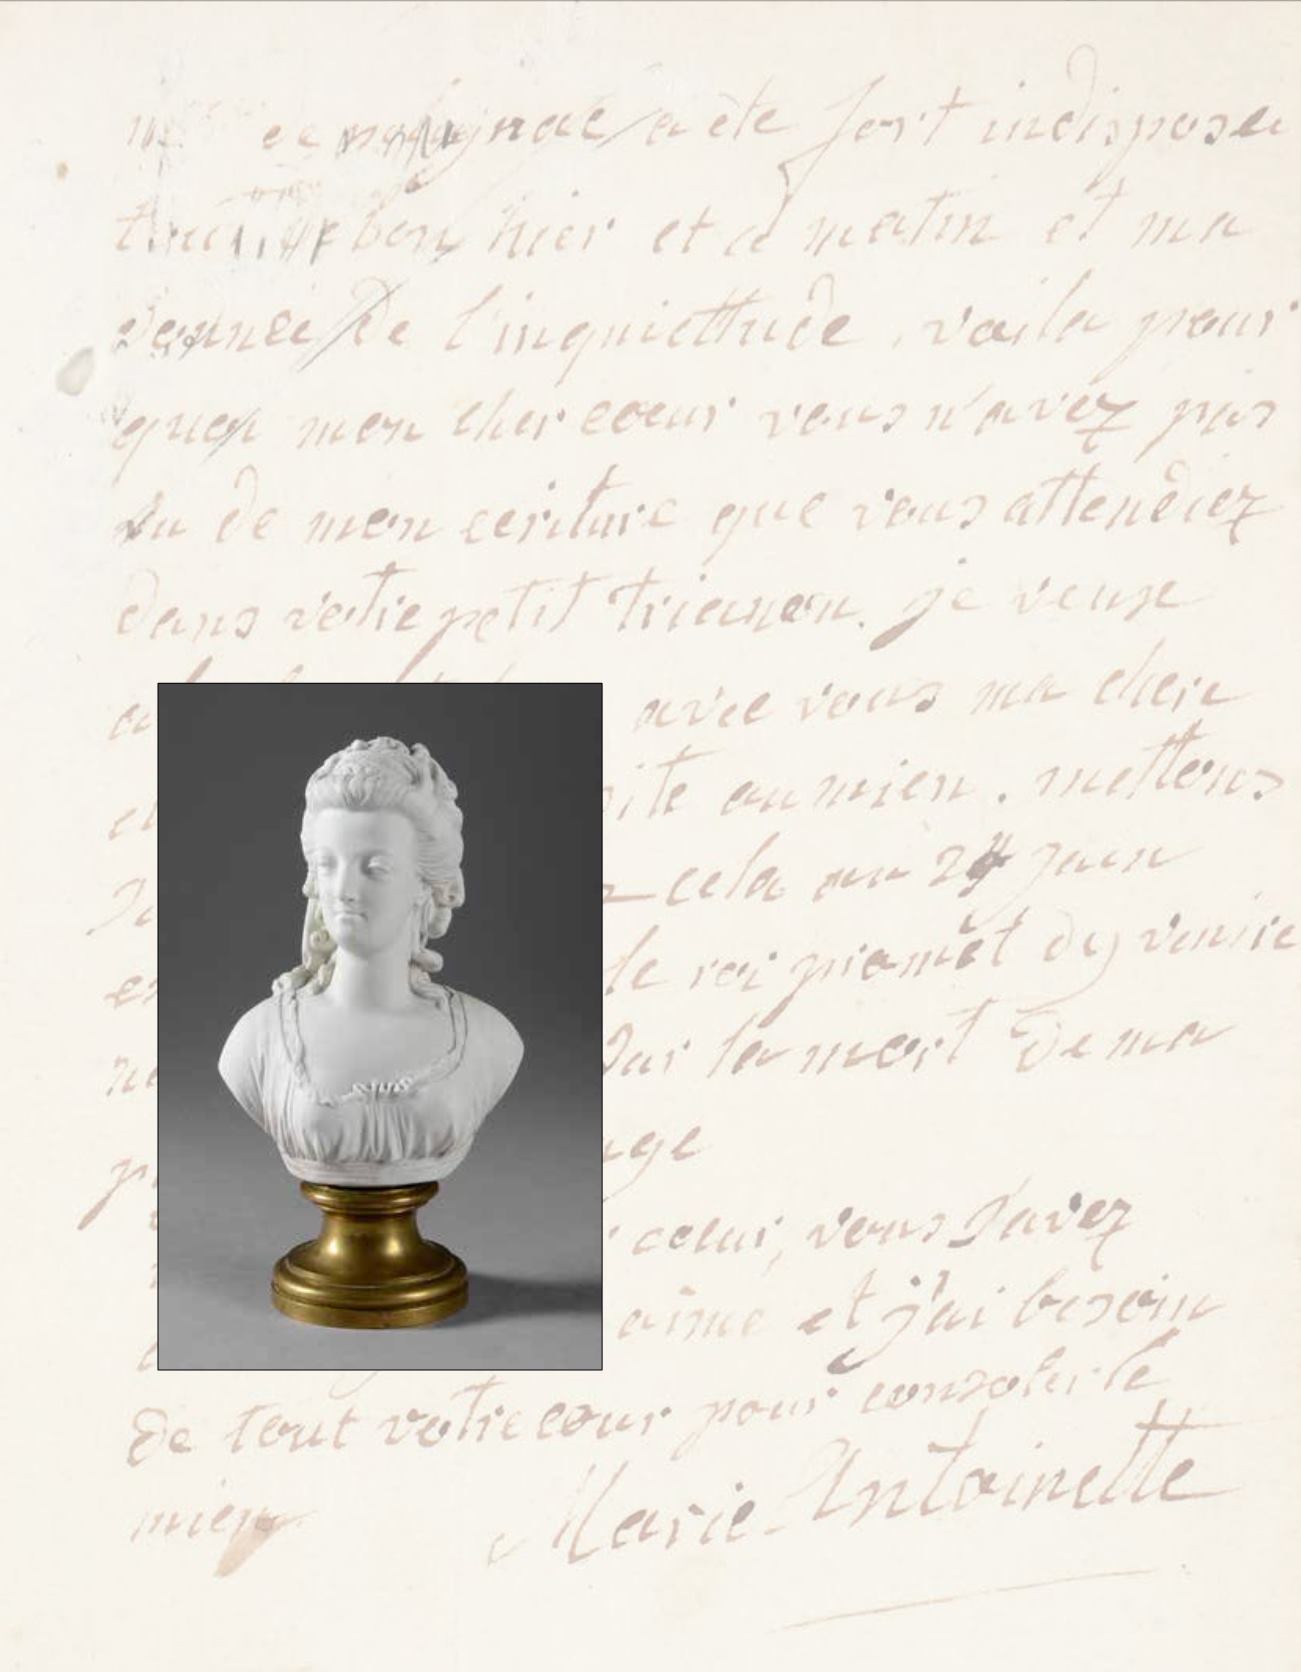 de polignac a été fort indisposée
hier et ce matin et ma
donnée de l'inquiettude, voila pour
quoy mon cher coeur vous n'avez pas
eu de mon ecriture que vous attendiez
dans votre petit trianon. je veux
avec vous ma chere
au mien. mettons
cela au 24 juin
le roi promet dy venire
par la mort de ma
coeur, vous savez
aime et j'ai besoin
de tout votre coeur pour consoler le
mien Marie-Antoinette